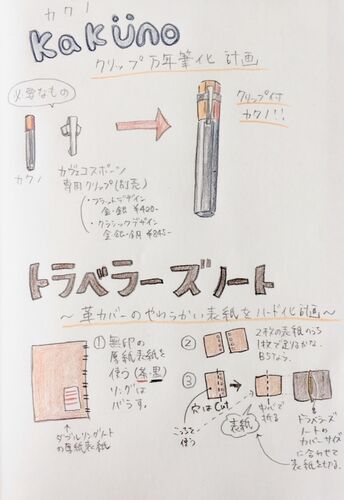 カクノ
KaKüno
クリップ万年筆化 計画
必要なもの
カクノ
カヴェコスポーツ
専用クリップ(別売)
・フラットデザイン
金・銀 ¥420-
・クラシックデザイン
金・銀・銅 ¥845-
クリップ付
カクノ!!
トラベラーズノート
~革カバーのやわらかい表紙をハード化計画~
① 無印の
厚紙表紙を
使う(茶・黒)
リングは
バラす。
ダブルリングノート
の厚紙表紙
②
2枚の表紙のうち
1枚で足りるかな。
B5なら。
③
穴はCut
こっちを
使う
中心で
折る
表紙
トラベラーズ
ノートの
カバーサイズ
に合わせて
表紙を切る。